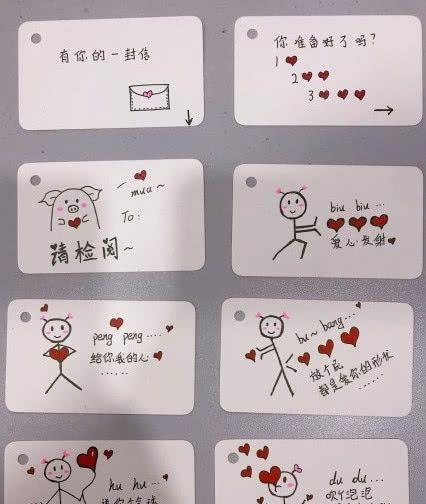 有你的一封信
你准备好了吗？
1
2
3
mua~
To：
请检阅~
biu biu...
爱心发射
peng peng....
给你我的心
......
bu~ bang....
放个屁
都是爱你的形状
......
hu hu...
du du...
吹个泡泡